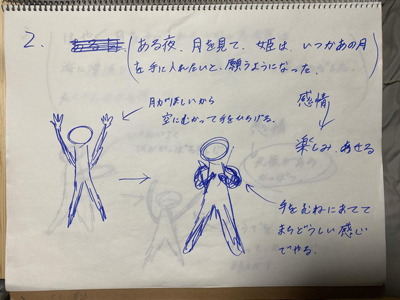 2. (ある夜、月を見て、姫は、いつかあの月
を手に入れたいと、願うようになった。)
月がほしいから
空にむかって手をひろげる。
感情
↓
楽しみ、あせる
手をむねにあてて
まちどうしい感じ
でやる。